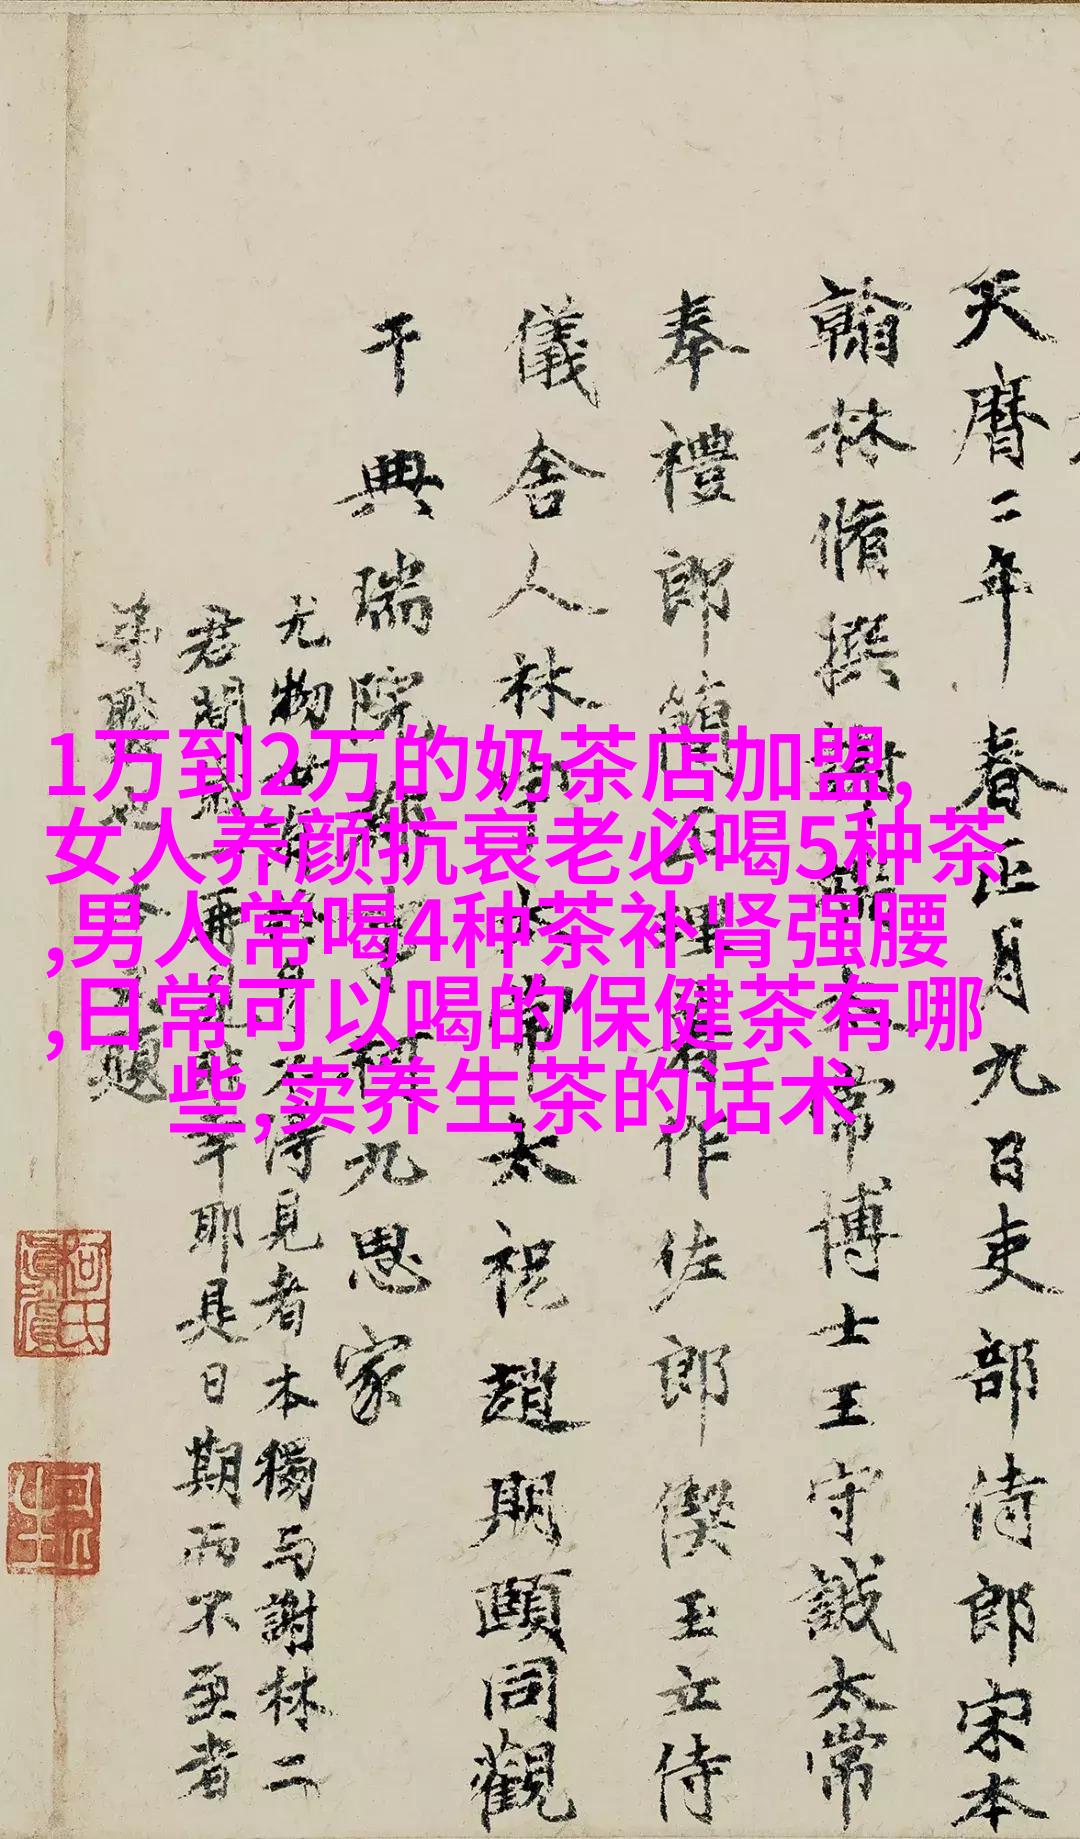 1万到2万的奶茶店加盟,
女人养颜抗衰老必喝5种茶
,男人常喝4种茶补肾强腰
,日常可以喝的保健茶有哪
些,卖养生茶的话术
天曆二年春正月九日吏部侍郎宋本
翰林脩撰謝端太常博士王守誠太常
奉禮郎簡正理著作佐郎偰玉立侍
儀舍人林宇大常太祝趙期頤同觀
于典瑞院都事柯九思家
尤物
得見者本獨与謝林二
君
年耶是日期而不至者
題